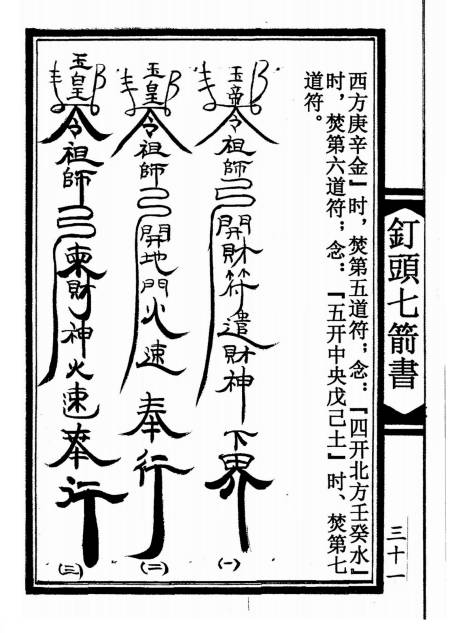 釘頭七箭書
三十一
西方庚辛金』时,焚第五道符;念:『四开北方壬癸水』
时,焚第六道符;念:『五开中央戊己土』时、焚第七
道符。
玉帝令祖師開財符遣財神下界
(一)
玉皇令祖師開地門火速奉行
(二)
玉皇令祖師財神火速奉行
(三)